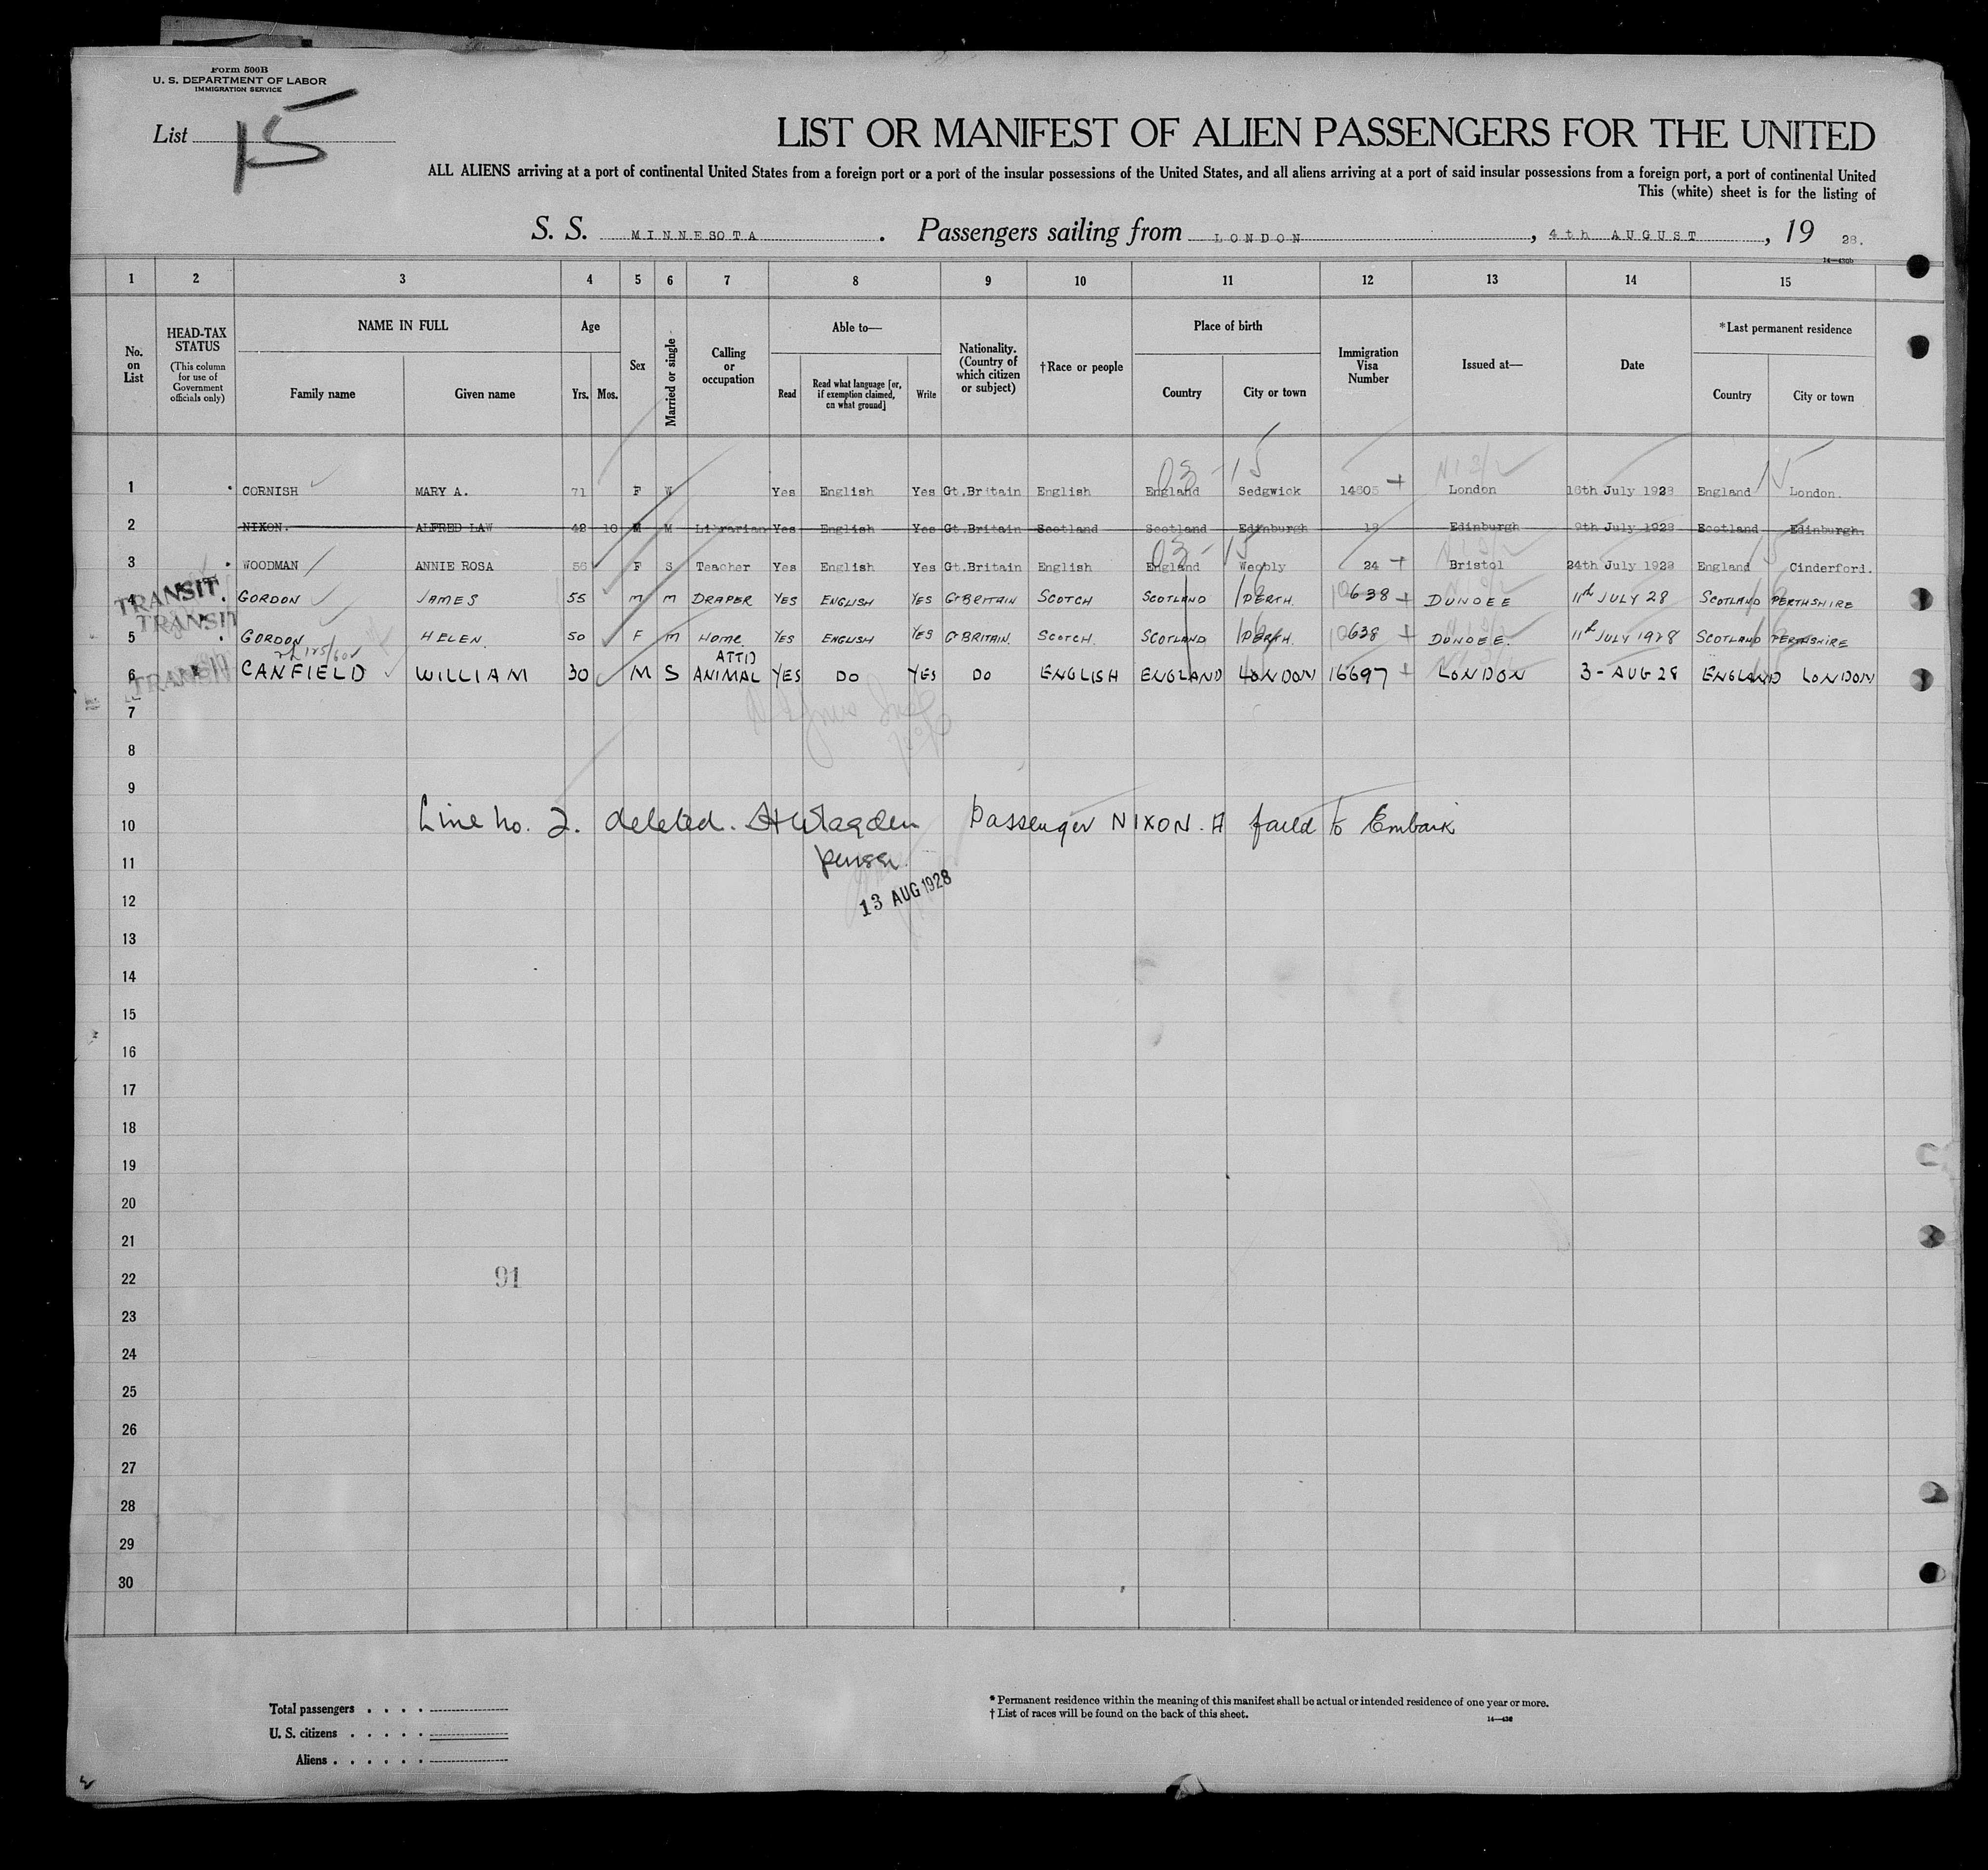 Form 500B
U. S. DEPARTMENT OF LABOR
IMMIGRATION SERVICE
List 15
LIST OR MANIFEST OF ALIEN PASSENGERS FOR THE UNITED
ALL ALIENS arriving at a port of continental United States from a foreign port or a port of the insular possessions of the United States, and all aliens arriving at a port of said insular possessions from a foreign port, a port of continental United
This (white) sheet is for the listing of
S. S. MINNESOTA. Passengers sailing from LONDON, 4th AUGUST, 19 28.
14—430b
1 2 3 4 5 6 7 8 9 10 11 12 13 14 15
No. on List
HEAD-TAX STATUS
(This column for use of Government officials only)
NAME IN FULL
Family name Given name
Age
Yrs. Mos.
Sex
Married or single
Calling or occupation
Able to—
Read
Read what language [or, if exemption claimed, on what ground]
Write
Nationality. (Country of which citizen or subject)
†Race or people
Place of birth
Country City or town
Immigration Visa Number
Issued at—
Date
*Last permanent residence
Country City or town
03-15 15
1 CORNISH MARY A. 71 F W Yes English Yes Gt.Britain English England Sedgwick 14605 London 16th July 1928 England London.
2 NIXON. ALFRED LAW 48 10 M M Librarian Yes English Yes Gt.Britain Scotland Scotland Edinburgh 18 Edinburgh 9th July 1928 Scotland Edinburgh.
03-15 15
3 WOODMAN ANNIE ROSA 56 F S Teacher Yes English Yes Gt.Britain English England Weobly 24 Bristol 24th July 1928 England Cinderford.
TRANSIT
4 GORDON JAMES 55 M M DRAPER YES ENGLISH YES Gt BRITAIN SCOTCH SCOTLAND PERTH. 10638 DUNDEE 11th JULY 28 SCOTLAND PERTHSHIRE
TRANSIT
5 GORDON HELEN 50 F M HOME YES ENGLISH YES Gt BRITAIN. SCOTCH. SCOTLAND PERTH. 10638 DUNDEE. 11th JULY 1928 SCOTLAND PERTHSHIRE
TRANSIT
6 CANFIELD WILLIAM 30 M S ANIMAL ATTD YES DO YES DO ENGLISH ENGLAND LONDON 16697 LONDON 3-AUG 28 ENGLAND LONDON
7
8
9
10 Line No. 2. deleted. Passenger NIXON. A faild to Embark
11 purser
12 13 AUG 1928
13
14
15
16
17
18
19
20
21
22 91
23
24
25
26
27
28
29
30
Total passengers . . . .
U. S. citizens . . . . .
Aliens . . . . . .
* Permanent residence within the meaning of this manifest shall be actual or intended residence of one year or more.
† List of races will be found on the back of this sheet.